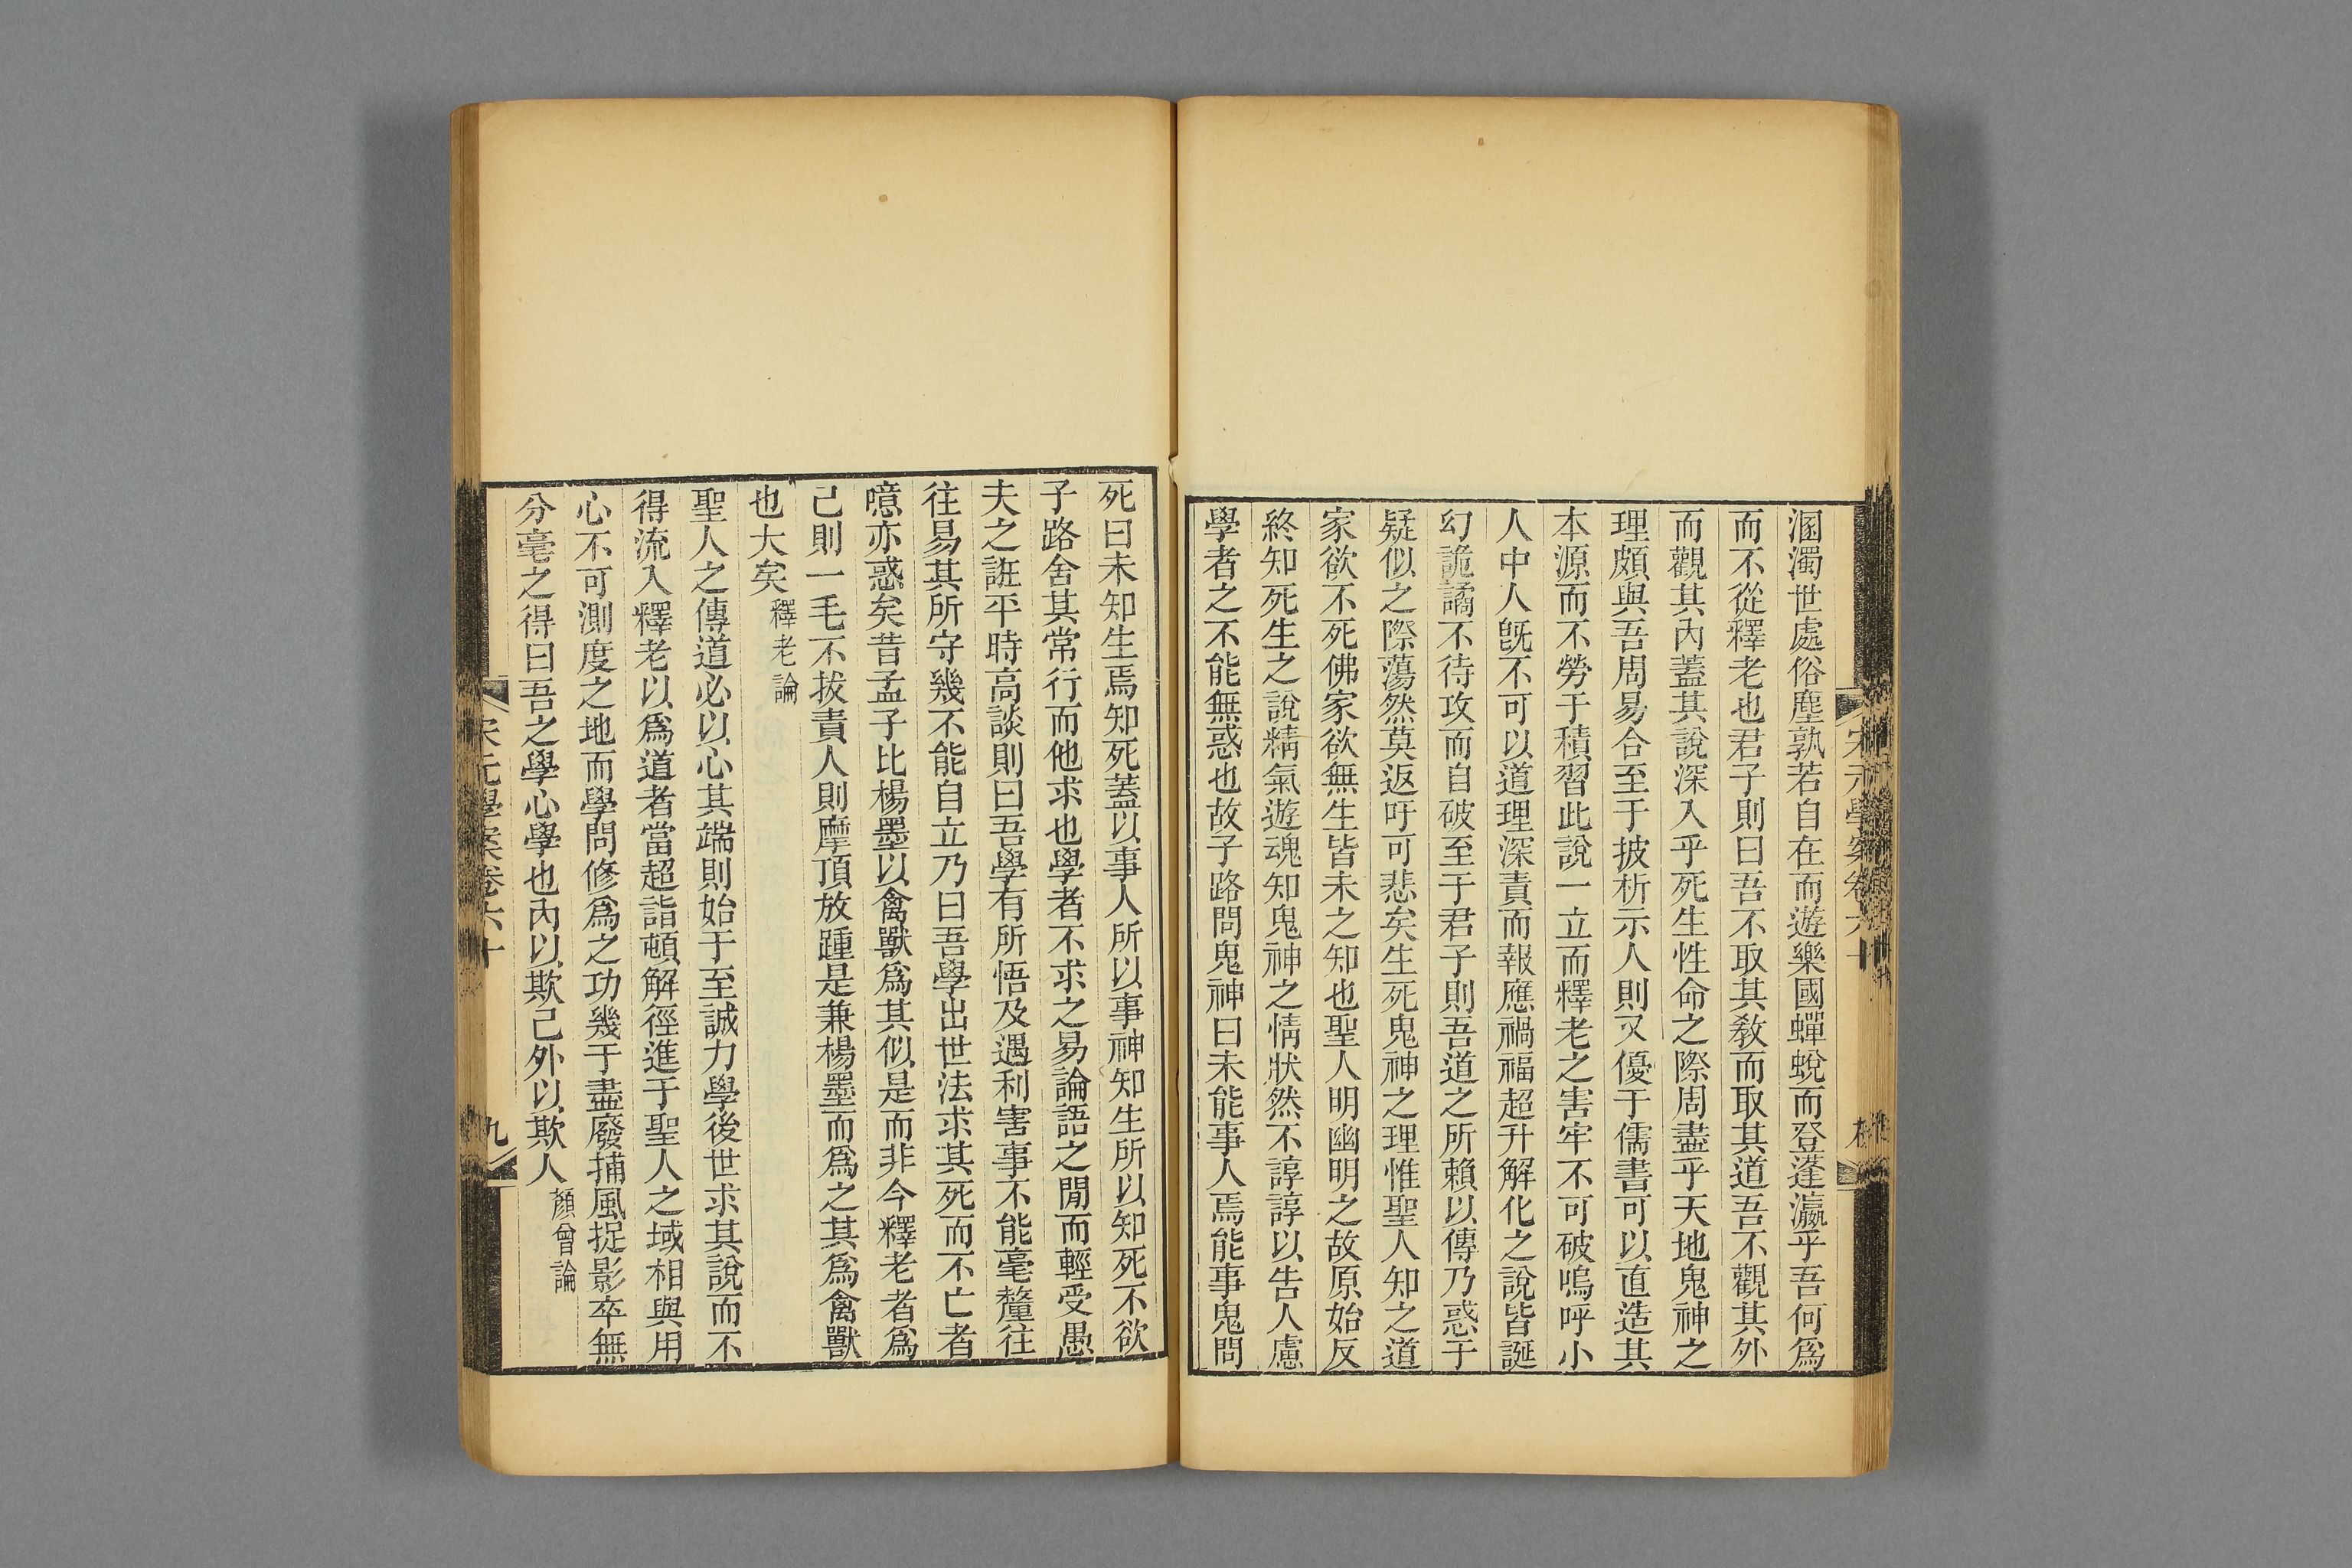 溷濁世處俗塵孰若自在而遊樂國蟬蛻而登蓬瀛乎吾何爲
而不從釋老也君子則曰吾不取其敎而取其道吾不觀其外
而觀其內蓋其說深入乎死生性命之際周盡乎天地鬼神之
理頗與吾周易合至于披析示人則又優于儒書可以直造其
本源而不勞于積習此說一立而釋老之害牢不可破嗚呼小
人中人旣不可以道理深責而報應禍福超升解化之說皆誕
幻詭譎不待攻而自破至于君子則吾道之所賴以傳乃惑于
疑似之際蕩然莫返吁可悲矣生死鬼神之理惟聖人知之道
家欲不死佛家欲無生皆未之知也聖人明幽明之故原始反
終知死生之說精氣遊魂知鬼神之情狀然不諄諄以告人慮
學者之不能無惑也故子路問鬼神曰未能事人焉能事鬼問
死曰未知生焉知死蓋以事人所以事神知生所以知死不欲
子路舍其常行而他求也學者不求之易論語之閒而輕受愚
夫之誑平時高談則曰吾學有所悟及遇利害事不能毫釐往
往易其所守幾不能自立乃曰吾學出世法求其死而不亡者
噫亦惑矣昔孟子比楊墨以禽獸爲其似是而非今釋老者爲
己則一毛不拔責人則摩頂放踵是兼楊墨而爲之其爲禽獸
也大矣釋老論
聖人之傳道必以心其端則始于至誠力學後世求其說而不
得流入釋老以爲道者當超詣頓解徑進于聖人之域相與用
心不可測度之地而學問修爲之功幾于盡廢捕風捉影卒無
分毫之得曰吾之學心學也內以欺己外以欺人顏曾論
宋元學案卷六十
九